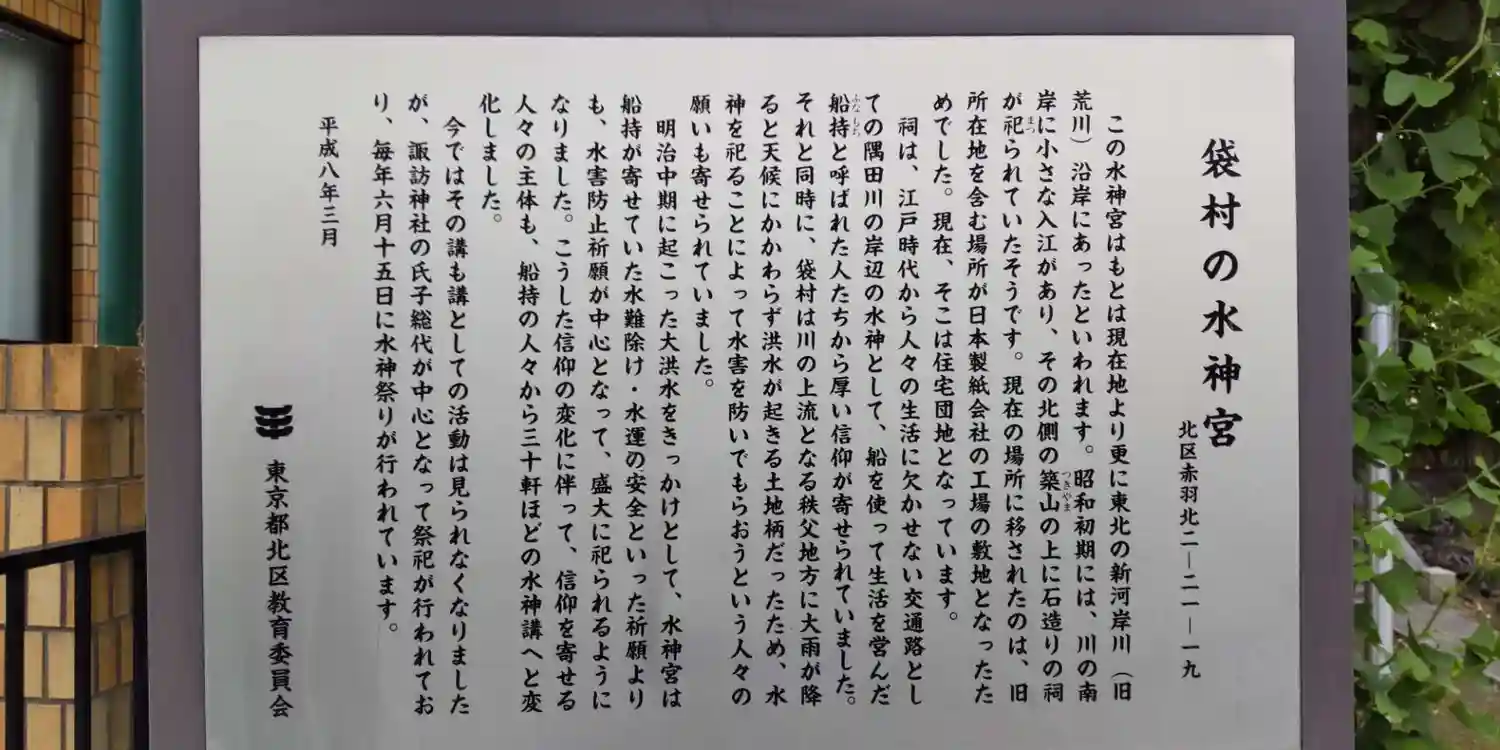 袋村の水神宮
北区赤羽北二―二一―一九
この水神宮はもとは現在地より更に東北の新河岸川（旧
荒川）沿岸にあったといわれます。昭和初期には、川の南
岸に小さな入江があり、その北側の築山の上に石造りの祠
つきやま
が祀られていたそうです。現在の場所に移されたのは、旧
まつ
所在地を含む場所が日本製紙会社の工場の敷地となったた
めでした。現在、そこは住宅団地となっています。
祠は、江戸時代から人々の生活に欠かせない交通路とし
ての隅田川の岸辺の水神として、船を使って生活を営んだ
船持と呼ばれた人たちから厚い信仰が寄せられていました。
ふなもち
それと同時に、袋村は川の上流となる秩父地方に大雨が降
ると天候にかかわらず洪水が起きる土地柄だったため、水
神を祀ることによって水害を防いでもらおうという人々の
願いも寄せられていました。
明治中期に起こった大洪水をきっかけとして、水神宮は
船持が寄せていた水難除け・水運の安全といった祈願より
も、水害防止祈願が中心となって、盛大に祀られるように
なりました。こうした信仰の変化に伴って、信仰を寄せる
人々の主体も、船持の人々から三十軒ほどの水神講へと変
化しました。
今ではその講も講としての活動は見られなくなりました
が、諏訪神社の氏子総代が中心となって祭祀が行われてお
り、毎年六月十五日に水神祭りが行われています。
平成八年三月
東京都北区教育委員会